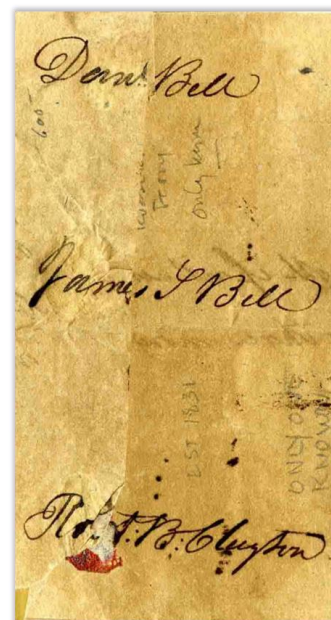 Danl Bell
600
only know
James S Bell
EST 1831
ONLY ONE
KNOWN
Robt. B. Clayton